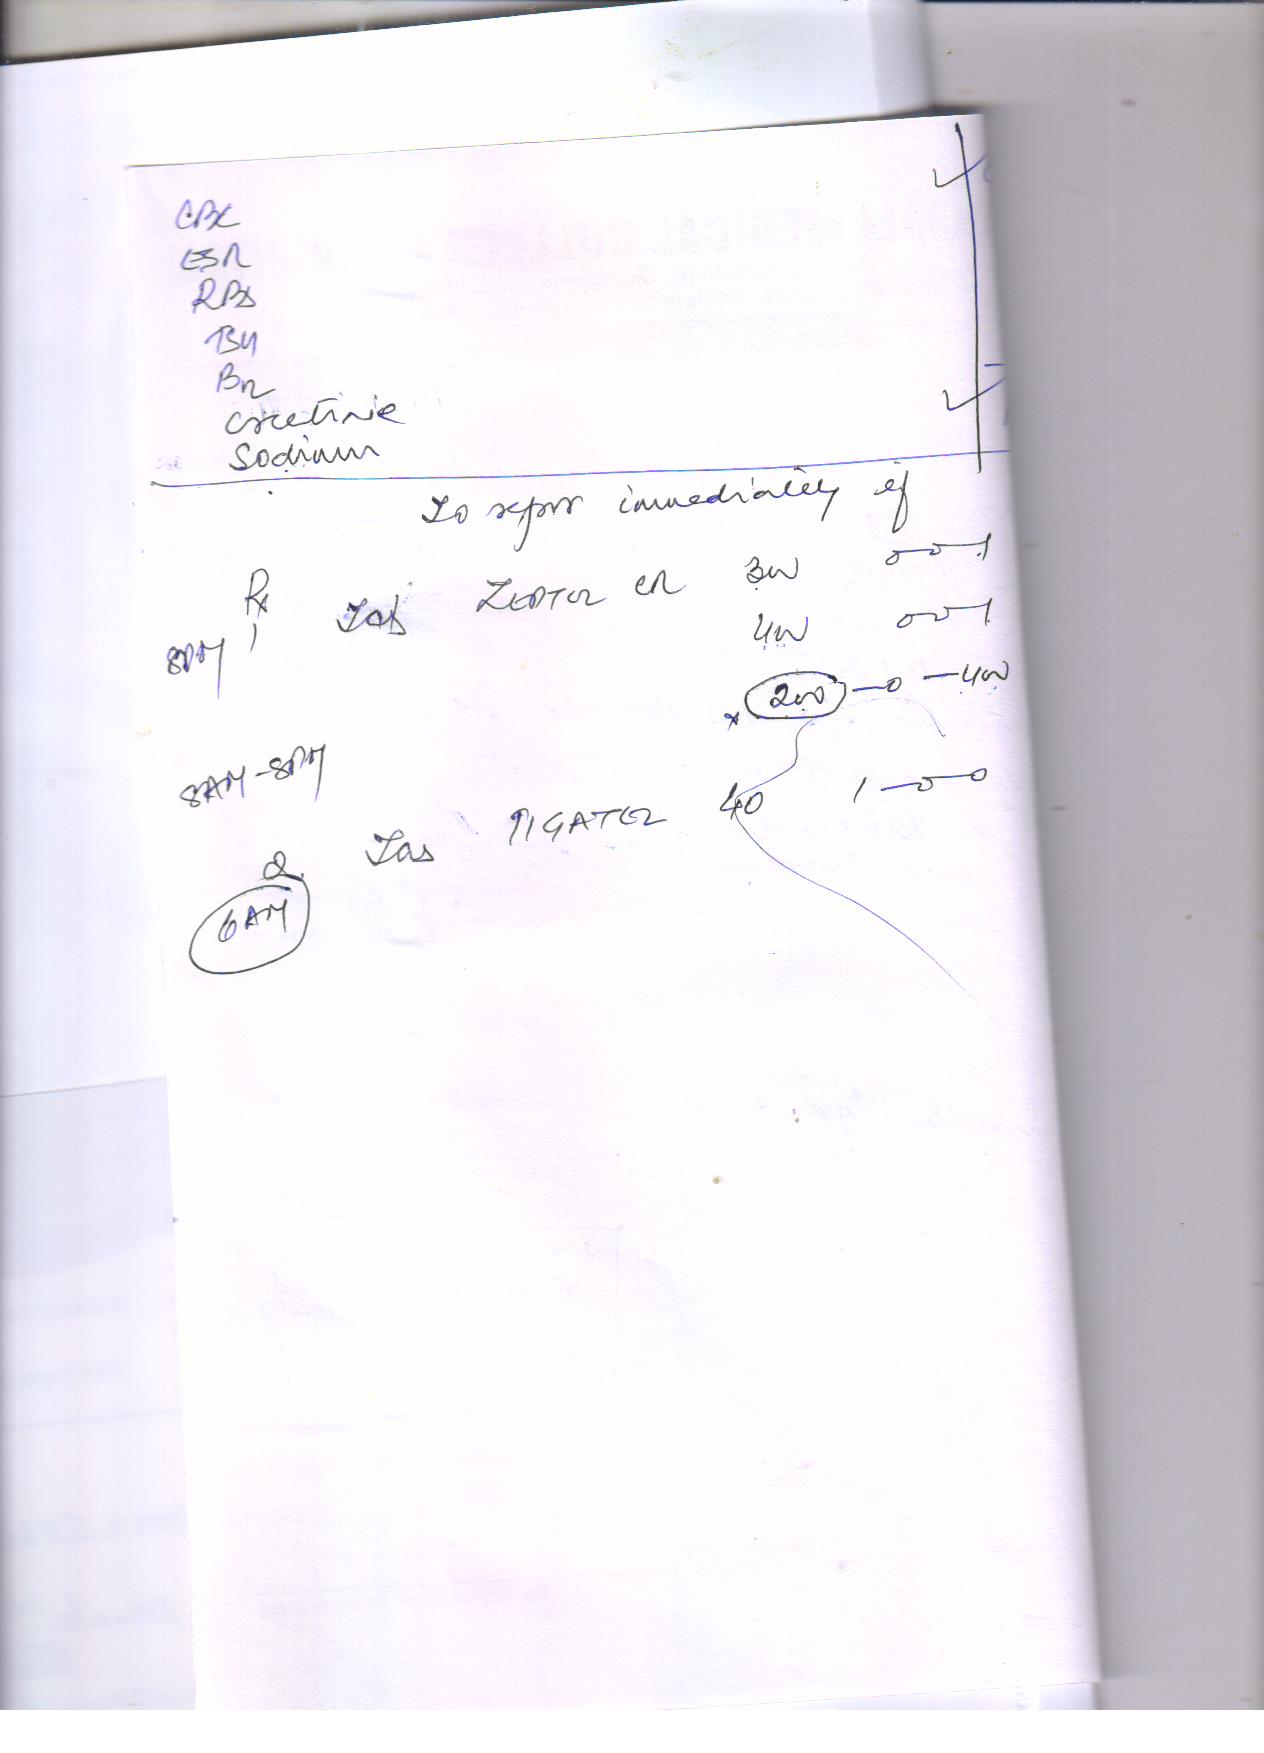 CBC
ESR
RBS
BU
creatinine
Sodium
To report immediately if
Rx
1 Tab ZEPTOL CR 300 0-0-1
8PM 400 0-0-1
200-0-400
8AM-8PM
2. Tab 40 1-0-0
6AM